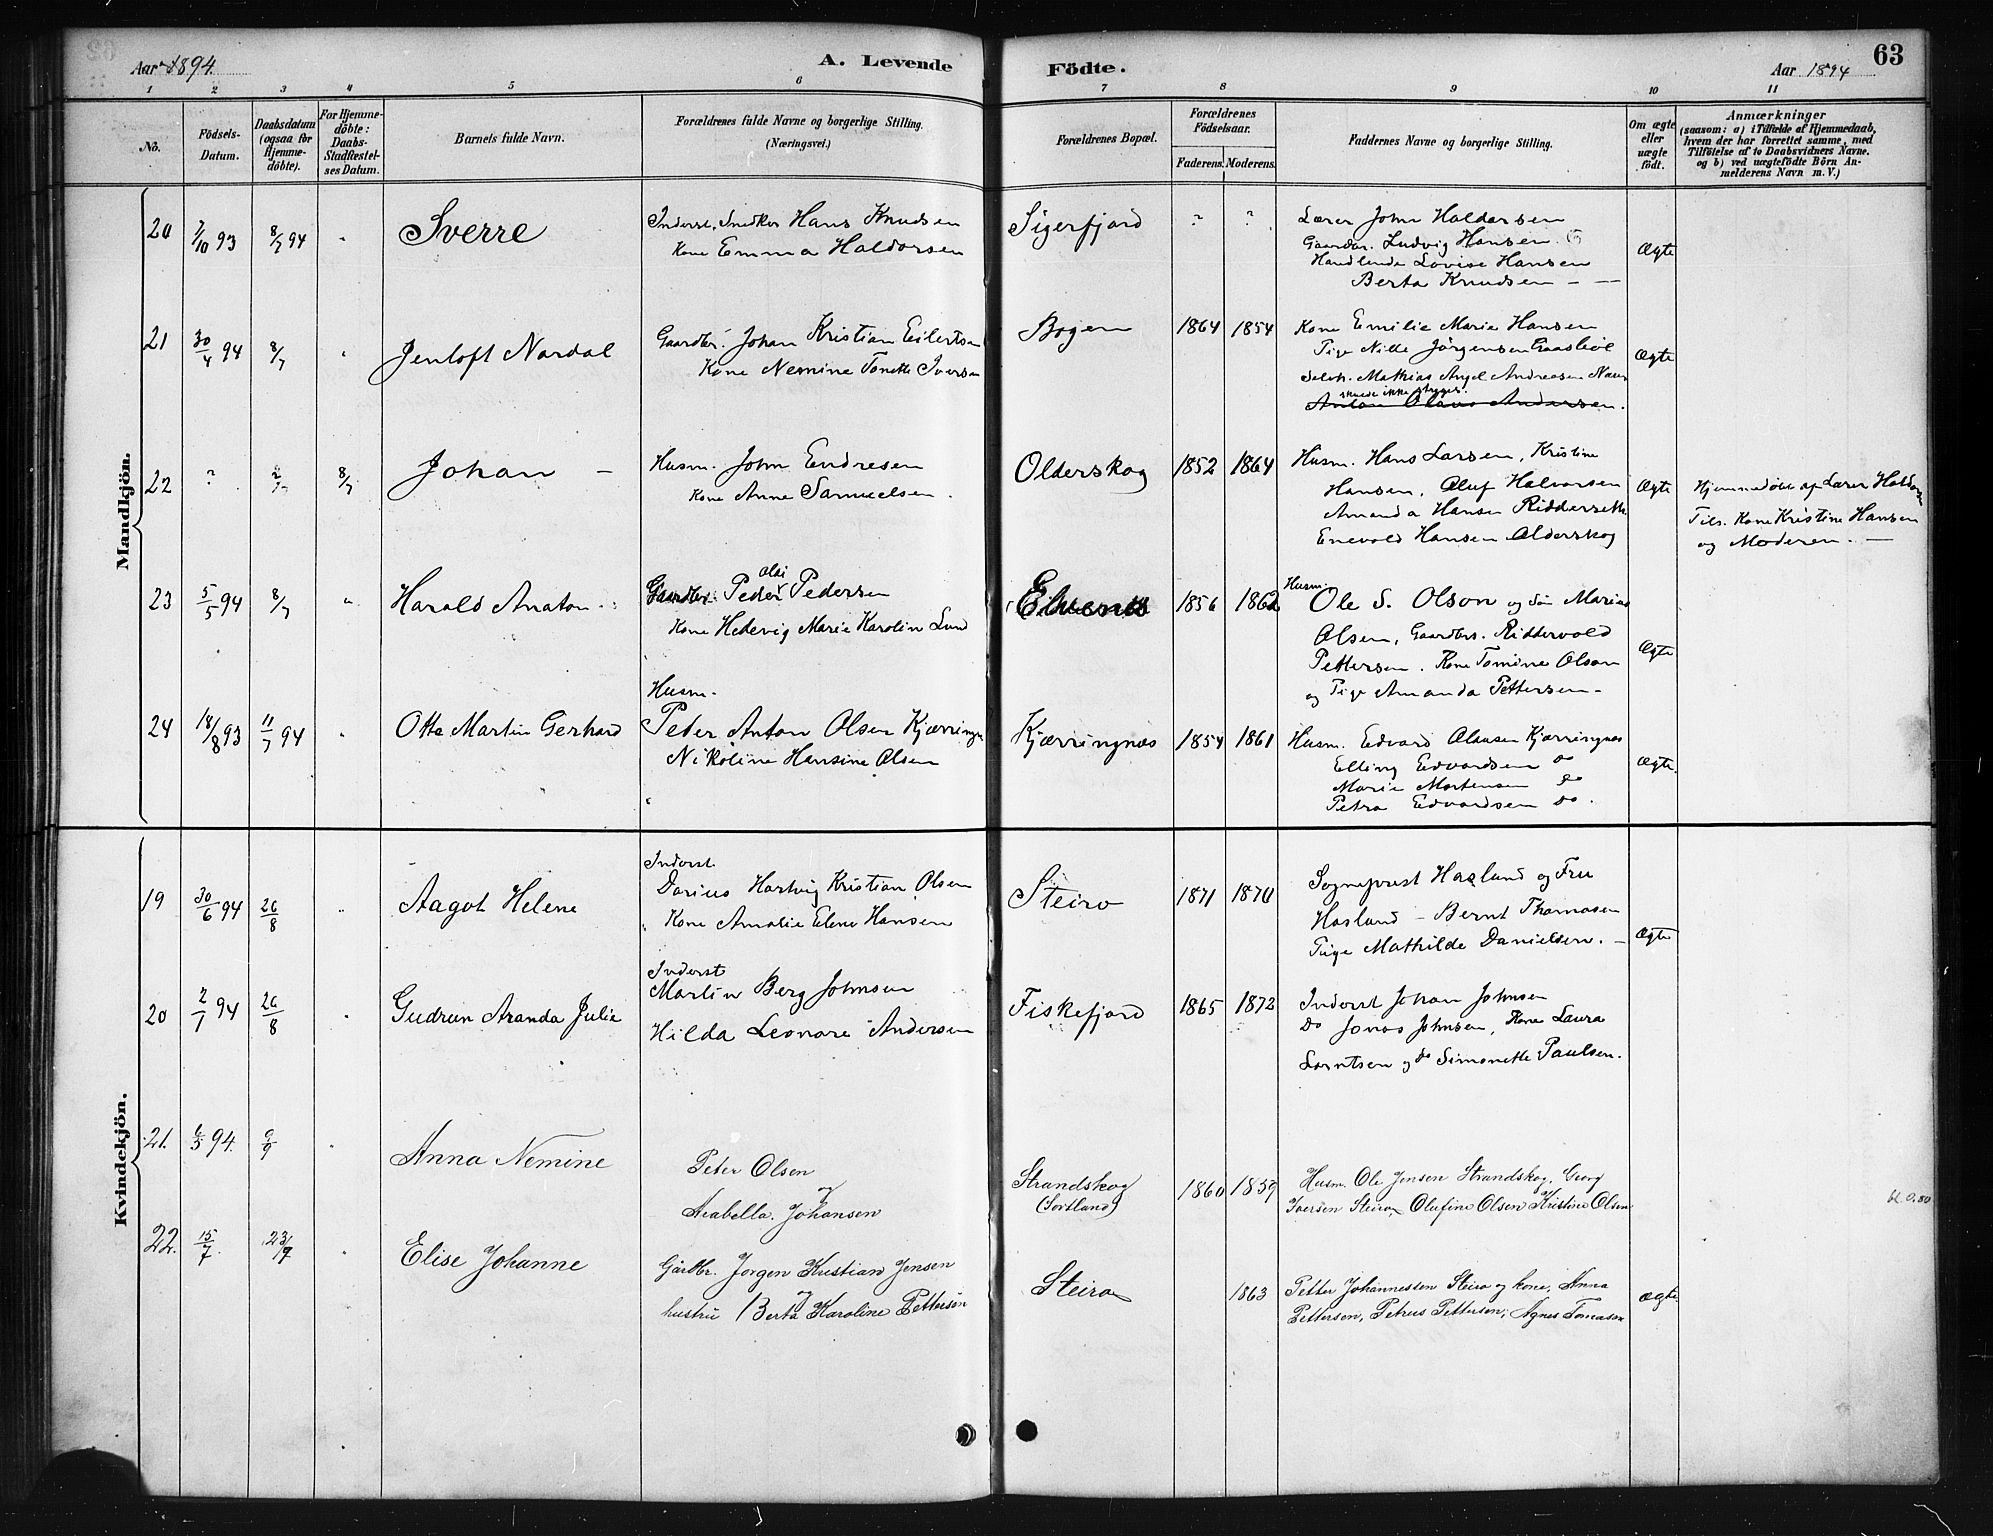 Aar 1894.
A. Levende
Födte.
Aar 1894
63
1 2 3 4 5 6 7 8 9 10 11
No.
Födsels-
Datum.
Daabsdatum
(ogsaa for
Hjemme-
döbte).
For Hjemme-
döbte:
Daabs-
Stadfæstel-
ses Datum.
Barnets fulde Navn.
Forældrenes fulde Navne og borgerlige Stilling.
(Næringsvei.)
Forældrenes Bopæl.
Forældrenes
Födselsaar.
Faderens. Moderens.
Faddernes Navne og borgerlige Stilling.
Om ægte
eller
uægte
födt.
Anmærkninger
(saasom: a) i Tilfælde af Hjemmedaab,
hvem der har forrettet samme, med
Tilföielse af to Daabsvidners Navne.
og b) ved uægtefödte Börn An-
melderens Navn m. V.)
Mandkjön.
20 7/10 93 8/7 94 " Sverre
Inderst, Snedker Hans Knudsen
Kone Emma Haldorsen
Sigerfjord ? ?
Lærer John Haldorsen
Gaardbr. Ludvig Hansen
Handlende Lovise Hansen
Berta Knudsen — —
Ægte
21 30/4 94 8/7 " Jentoft Nordal
Gaardbr. Johan Kristian Eilertsen
Kone Nemine Tonette Iversen
Bogen 1864 1854
Kone Emilie Marie Hansen
Pige Nille Jörgensen Gaasböl
Selvh. Mathias Angel Andreasen
skrede ikke
Anton Olaus Andersen.
Ægte
22 ? 2/7 8/7 Johan —
Husm. John Endresen
Kone Anne Samuelsen.
Olderskog 1852 1864
Husm. Hans Larsen, Kristine
Hansen, Oluf Halvorsen
Amanda Hansen
Enevold Hansen Olderskog
Ægte
Hjemmedöbt af Lærer Haldorsen
Tils. Kone Kristine Hansen
og Moderen. —
23 5/5 94 8/7 " Harald Anaton
Gaardbr. Peder Olai Pedersen
Kone Hedevig Marie Karolin Lund
Elvenes 1856 1862
Husm.
Ole S. Olson og Sön Marius
Olsen, Gaardbr. Riddervold
Pettersen. Kone Tomine Olson
og Pige Amanda Pettersen —
Ægte
24 18/8 93 11/7 94 " Otto Martin Gerhard
Husm.
Peter Anton Olsen Kjærringn
Nikoline Hansine Olsen
Kjærringnæs 1854 1861
Husm. Edvard Olausen Kjærringnæs
Elling Edvardsen do
Marie Mortensen do
Petra Edvardsen do.
Ægte.
Kvindekjön.
19 30/6 94 26/8 " Aagot Helene
Inderst
Darius Hartvig Kristian Olsen
Kone Amalie Elene Hansen
Steiro 1871 1870
Sogneprest Hasland og Fru
Hasland — Bernt Thomasen
Pige Mathilde Danielsen. —
Ægte
20 2/7 94 26/8 " Gudrun Aranda Julie
Inderst
Martin Berg Johnsen
Hilda Leonore Andersen
Fiskefjord 1865 1872
Inderst Johan Johnsen
Do Jonas Johnsen, Kone Laura
Lorntsen og do Simonette Paulsen.
21. 6/5 94. 9/9 " Anna Nemine
Peter Olsen
og
Arabella Johansen
Strandskog
(Sortland)
1860 1859
Husm. Ole Jensen Strandskog, Georg
Iversen Steiro, Olufine Olsen Kristine Olsen
bl. 0.80
22. 15/7. 23/9 " Elise Johanne
Gårdbr. Jørgen Kristian Jensen
og
hustru Berta Karoline Pettersen
Steiro 1863
Petter Johannessen Steiro og kone, Anna
Pettersen, Petrus Pettersen, Agnes Tomasen
ægte